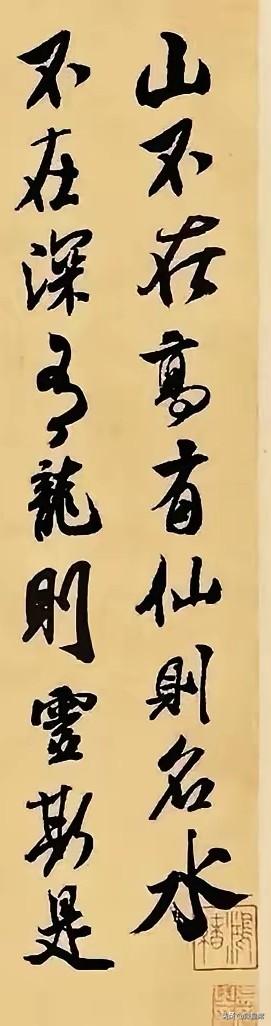 山不在高有仙則名水
不在深有龍則靈斯是